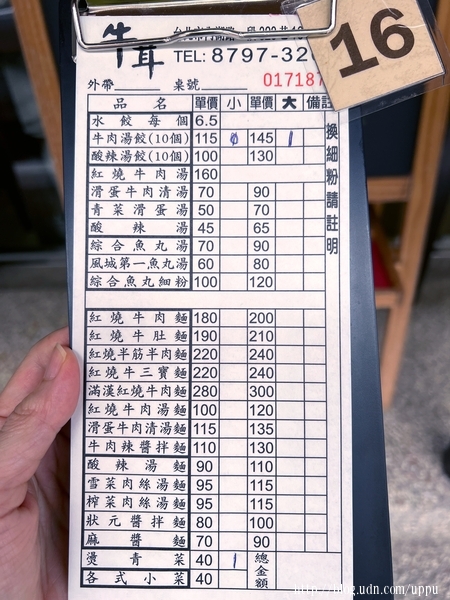 牛茸
TEL: 8797-32
16
外帶 桌號 017187
品名 單價 小 單價 大 備註
水餃每個 6.5
牛肉湯餃(10個) 115 145
酸辣湯餃(10個) 100 130
紅燒牛肉湯 160
滑蛋牛肉清湯 70 90
青菜滑蛋湯 50 70
酸辣湯 45 65
綜合魚丸湯 70 90
風城第一魚丸湯 60 80
綜合魚丸細粉 100 120
換細粉請註明
紅燒牛肉麵 180 200
紅燒牛肚麵 190 210
紅燒半筋半肉麵 220 240
紅燒牛三寶麵 220 240
滿漢紅燒牛肉麵 280 300
紅燒牛肉湯麵 100 120
滑蛋牛肉清湯麵 115 135
牛肉辣醬拌麵 110 130
酸辣湯麵 90 110
雪菜肉絲湯麵 95 115
榨菜肉絲湯麵 95 115
狀元醬拌麵 80 100
麻醬麵 70 90
燙青菜 40 總金額
各式小菜 40
http://blog.udn.com/uppu